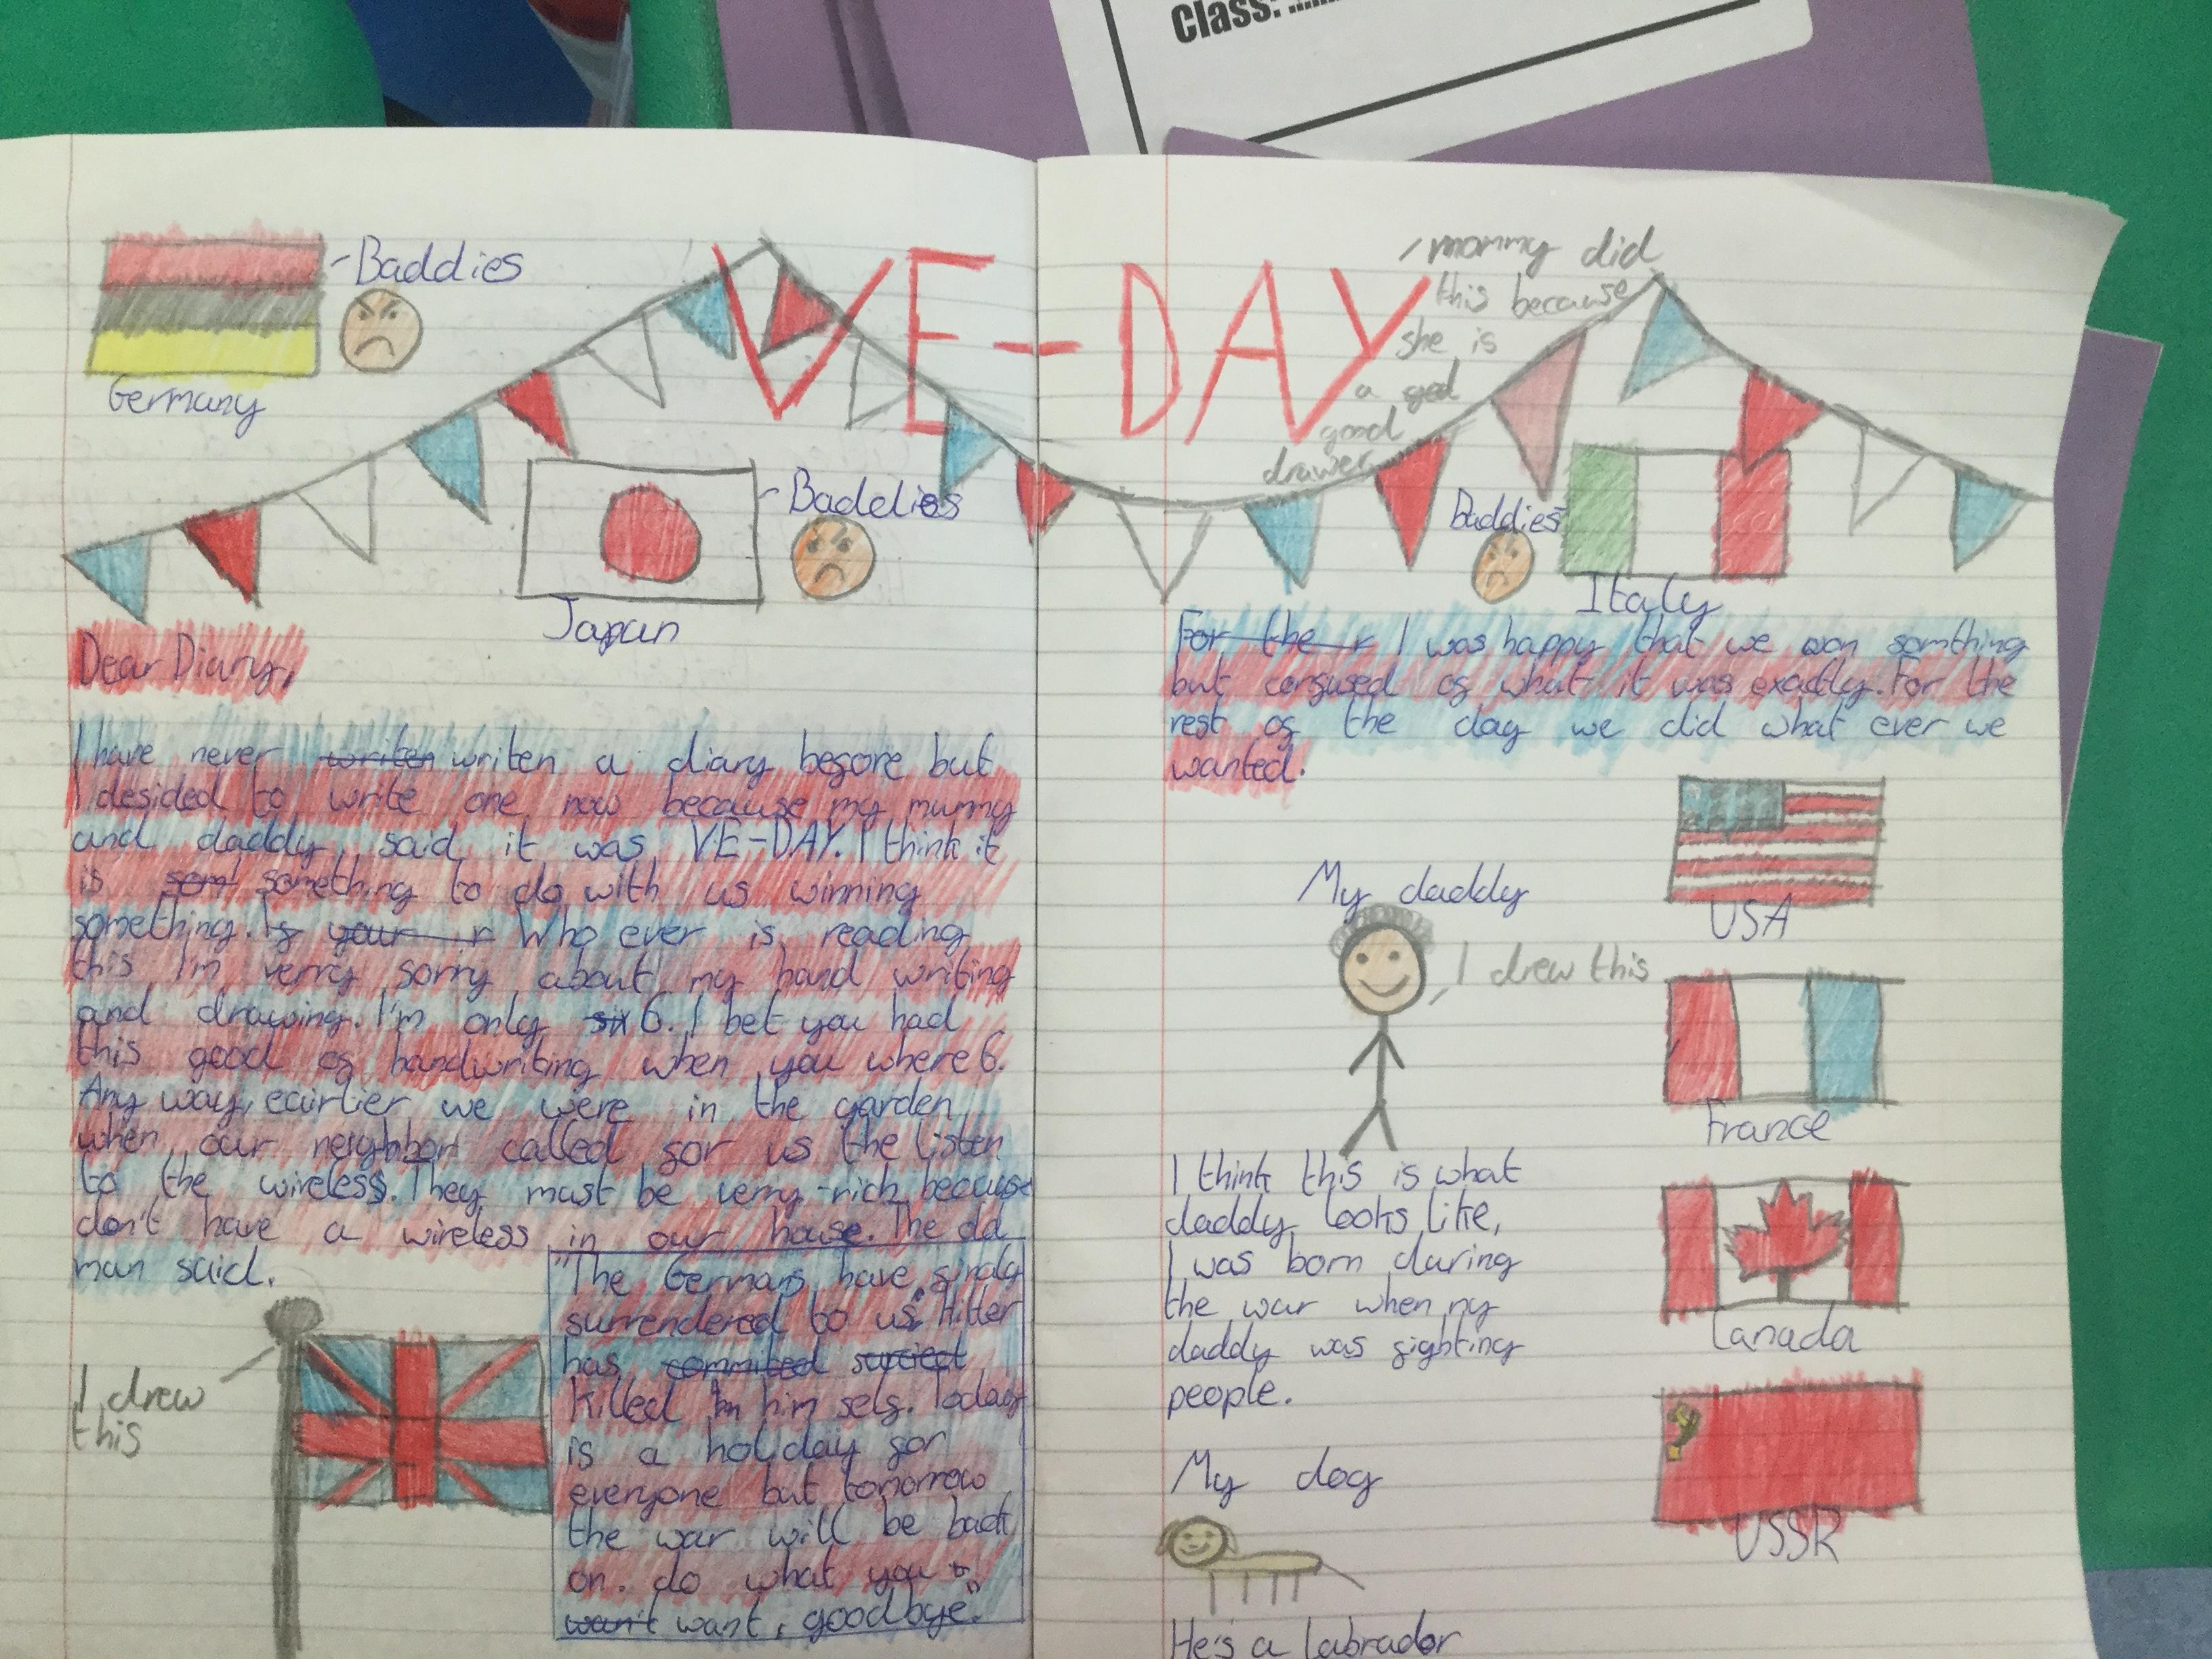 Class:
Baddies
Germany
VE-DAY
mommy did
this because
she is
a god
good
drawer
Baddies
Japan
Baddies
Italy
Dear Diary,
I have never writen writen a diary before but
I desided to write one now because my mummy
and daddy said it was VE-DAY. I think it
is som something to do with us winning
something. If your r Who ever is reading
this I'm verry sorry about my hand writing
and drawing. I'm only six 6. I bet you had
this good of handwriting when you where 6.
Any way, eairlier we were in the garden
when our neighbor called for us the listen
to the wireless. They must be verry rich because
don't have a wireless in our house. The old
man said.
"The Germans have finaly
surrendered to us". Hitler
has commited
killed him self. Today
is a holiday for
everyone but tomorrow
the war will be back
on. do what you
wan't want, goodbye."
I drew
this
For the r I was happy that we won somthing
but confused of what it was exactly. For the
rest of the day we did what ever we
wanted.
My daddy
I drew this
I think this is what
daddy looks like,
I was born during
the war when my
daddy was fighting
people.
My dog
He's a labrador
USA
France
Canada
USSR